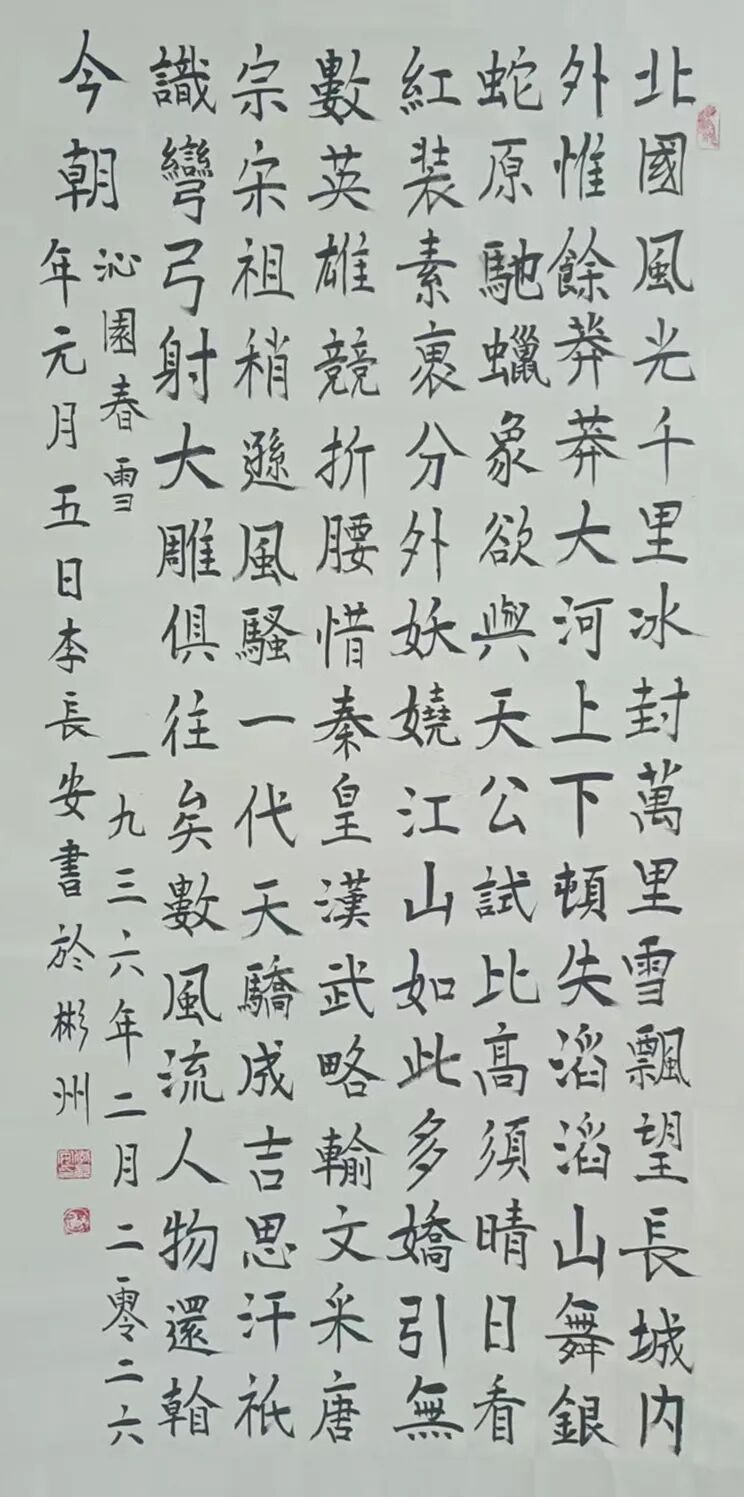 北國風光千里冰封萬里雪飄望長城內
外惟餘莽莽大河上下頓失滔滔山舞銀
蛇原馳蠟象欲與天公試比高須晴日看
紅装素裹分外妖嬈江山如此多嬌引無
數英雄競折腰惜秦皇漢武略輸文采唐
宗宋祖稍遜風騷一代天驕成吉思汗祇
識彎弓射大雕俱往矣數風流人物還
今朝
沁園春雪 一九三六年二月 二零二六
年元月五日李長安書於彬州